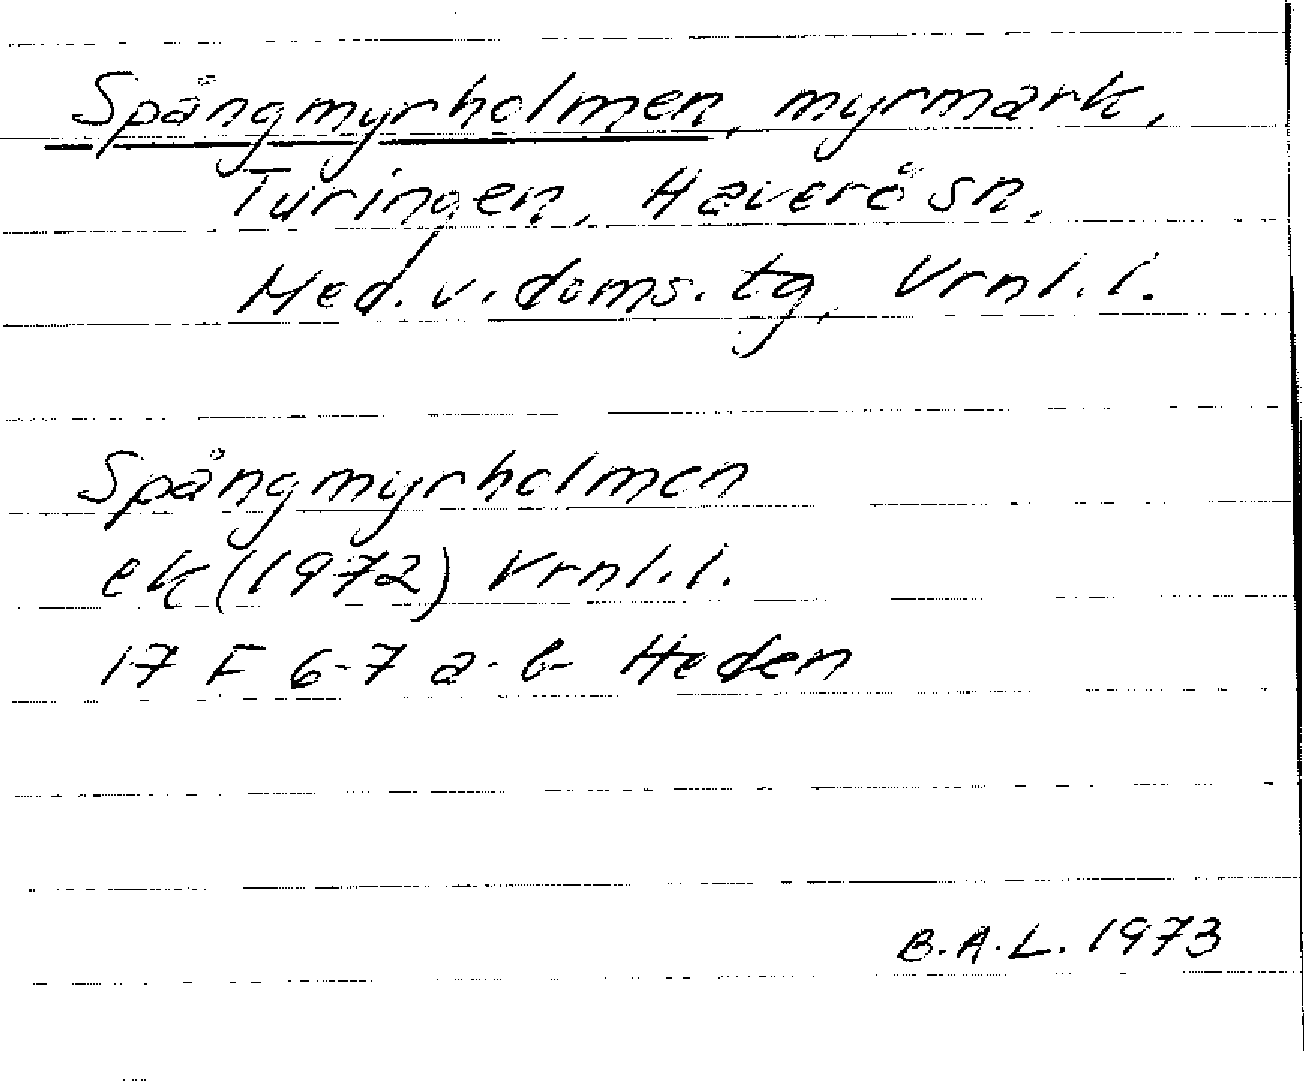 Spångmyrholmen, myrmark,
Turingen, Haverö sn.
Med. v. doms. tg, Vrnl. l.
Spångmyrholmen
ek (1972) Vrnl. l.
17 F 6-7 a-b Heden
B.A.L. 1973